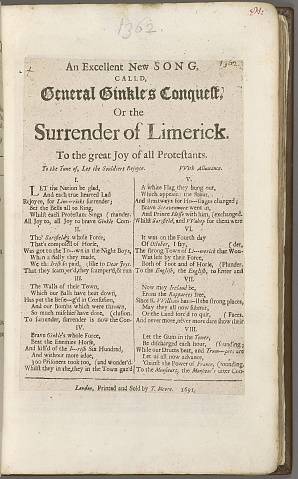 1362.
An Excellent New SONG,
CALL'D,
General Ginkle's Conquest,
Or the
Surrender of Limerick.
To the great Joy of all Protestants.
To the Tune of, Let the Souldiers Rejoyce.
With Allowance.
I.
LET the Nation be glad,
And each true hearted Lad
Rejoyce, for Limerick's surrender;
Set the Bells all to Ring,
Whilst each Protestant Sings
All Joy to, all Joy to brave Ginkle
II.
Tho' Sarsfeild's whole Force,
That's compos'd of Horse,
Was got to the
When a Sally they made,
We the
That they scamper'd, they scamper'd,
III.
The Walls of their Town,
Which our Balls have beat down,
Has put the
And our Bombs which were thrown,
So much mischief have done,
To surrender, surrender is now the
IV.
Brave Ginkle's whole Force,
Beat the Enemies Horse,
And kill'd of the Six Hundred,
And without more adoe,
300 Prisoners took too,
Whilst they in the, they in the Town
V.
A white Flag they hung out,
Which appeas'd the Rout,
And straitways for Hostages
Brave Scravenmore went in,
And Prince Hesse with him,
Whilst Sarsfeild, and
VI.
It was on the Fourth day
Of October, I say,
The strong Town of
Was left by their Force,
Both of Foot and of Horse,
To the English, the English, to Enter and
VII.
Now may Ireland be,
From the Rapparees free,
Since K. William has all the strong places,
May they all now submit,
Or the Land for'd to quit,
And never more, never more dare shew their
VIII.
Let the Guns in the Tower,
Be discharged each hour,
While our Drums beat, and
Let us all now advance,
'Gainst the Power of France,
To the Monsieurs, the Monsieur's utter
London, Printed and Sold by T. Moore. 1691.